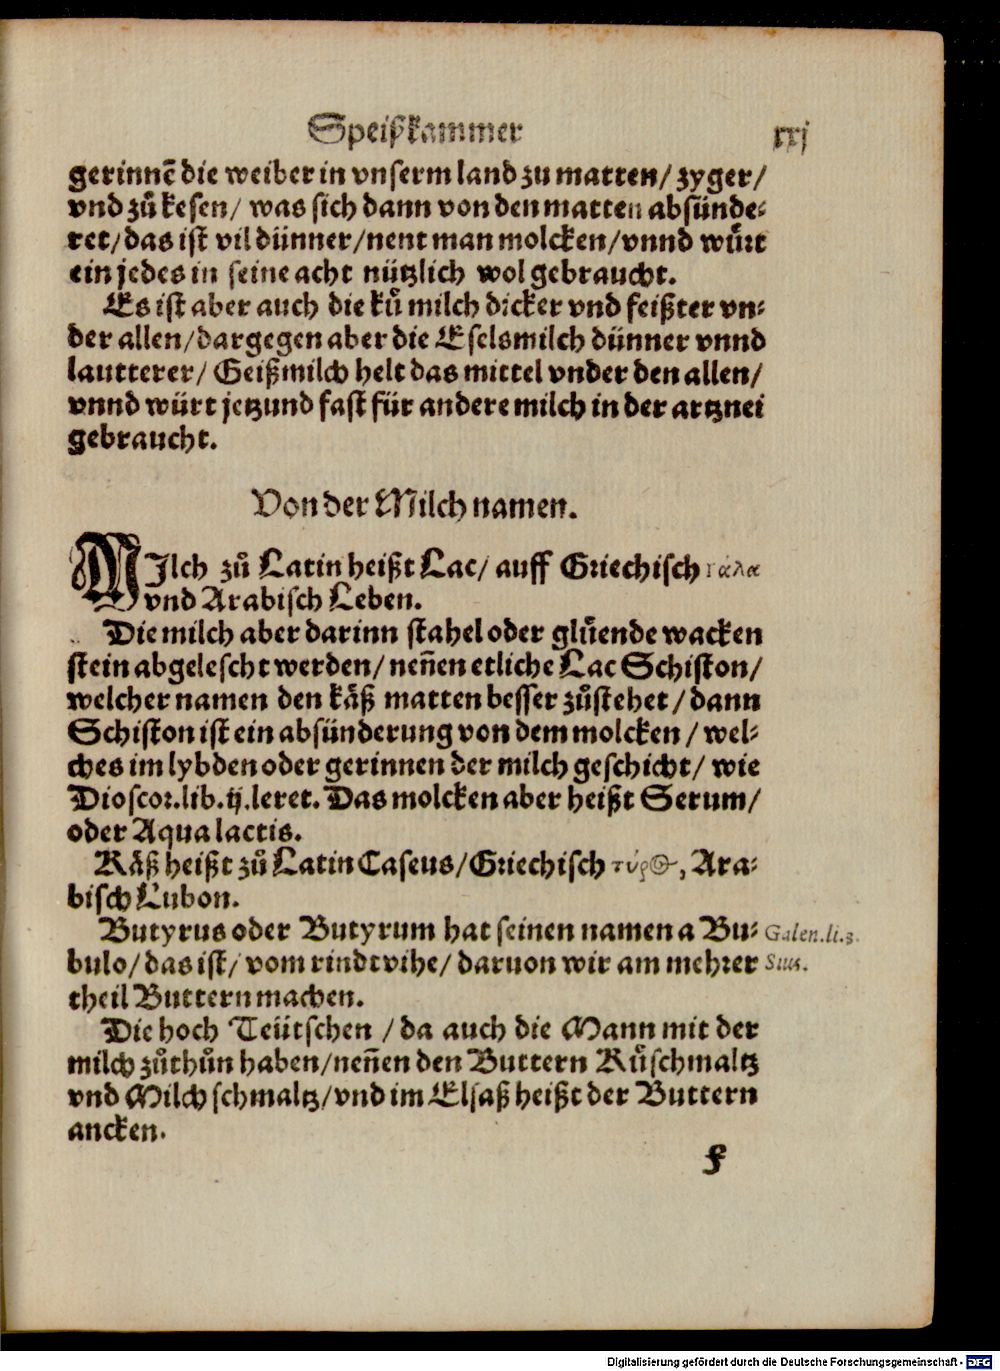 Speißkammer xxj
gerinnẽ die weiber in vnserm land zu matten/ zyger/
vnd zů kesen/ was sich dann von den matten absünde⸗
ret/ das ist vil dünner/ nent man molcken/ vnnd würt
ein jedes in seine acht nützlich wol gebraucht.
Es ist aber auch die ků milch dicker vnd feißter vn⸗
der allen/ dargegen aber die Eselsmilch dünner vnnd
lautterer/ Geißmilch helt das mittel vnder den allen/
vnnd würt jetzund fast für andere milch in der artznei
gebraucht.
Von der Milch namen.
MIlch zů Latin heißt Lac/ auff Griechisch γάλα
vnd Arabisch Leben.
Die milch aber darinn stahel oder glůende wacken
stein abgelescht werden/ neñen etliche Lac Schiston/
welcher namen den käß matten besser zůstehet/ dann
Schiston ist ein absünderung von dem molcken/ wel⸗
ches im lybden oder gerinnen der milch geschicht/ wie
Dioscor. lib. ij. leret. Das molcken aber heißt Serum/
oder Aqua lactis.
Käß heißt zů Latin Caseus/ Griechisch τύρος, Ara⸗
bisch Lubon.
Butyrus oder Butyrum hat seinen namen a Bu⸗
bulo/ das ist/ vom rindtvihe/ daruon wir am mehrer
theil Buttern machen.
Galen. li. 3.
Sim.
Die hoch Teütschen / da auch die Mann mit der
milch zůthůn haben/ neñen den Buttern Růschmaltz
vnd Milch schmaltz/ vnd im Elsaß heißt der Buttern
ancken.
f
Digitalisierung gefördert durch die Deutsche Forschungsgemeinschaft - DFG